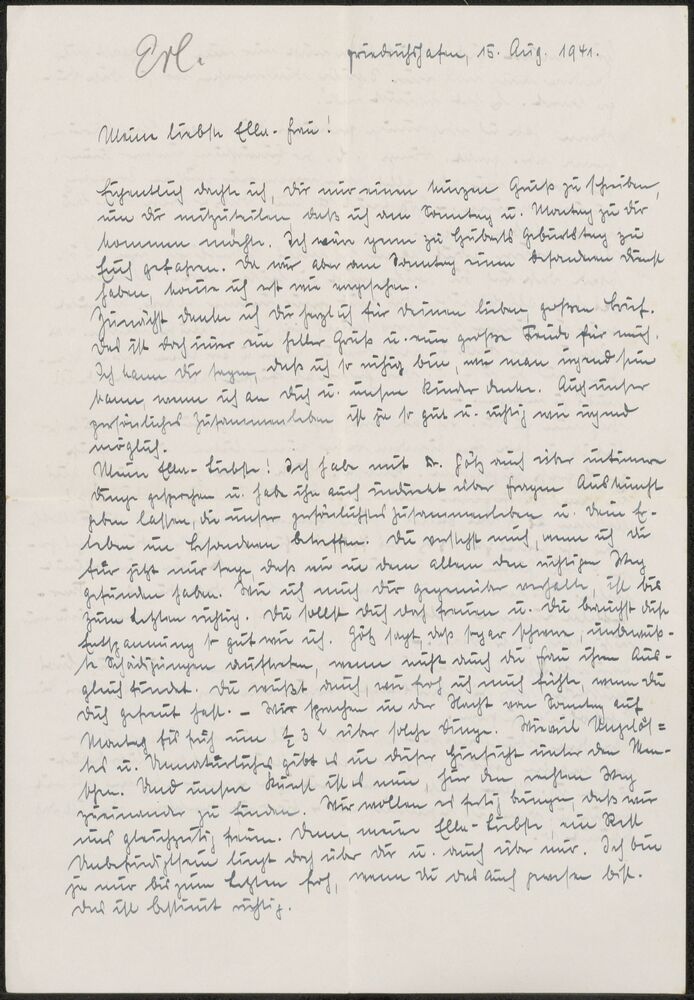 Erl.
Friedrichshafen, 15. Aug. 1941.
Meine liebste Ella-Frau!
Eigentlich dachte ich, Dir nur einen kurzen Gruß zu schreiben,
um Dir mitzuteilen daß ich am Sonntag u. Montag zu Dir
kommen möchte. Ich wäre gerne zu Huberts Geburtstag zu
Euch gefahren. Da wir aber am Sonntag einen besonderen Dienst
haben, konnte ich erst nie
Zunächst danke ich Dir herzlich für Deinen lieben, großen Brief.
Das ist doch immer ein heller Gruß u. eine große Freude für mich.
Ich kann Dir sagen, daß ich so ruhig bin, wie man irgend sein
kann, wenn ich an Dich u. unsere Kinder denke. Auch unser
persönliches Zusammenleben ist ja so gut u. richtig wie irgend
möglich.
Meine Ella-Liebste! Ich habe mit Dr. Götz auch über intimere
Dinge gesprochen u. habe ihn auch indirekt über Fragen Auskunft
geben lassen, die unser persönlichstes Zusammenleben u. Dein Er-
leben im besonderen betreffen. Du verstehst mich, wenn ich Dir
für jetzt nur sage, daß wir in dem allem den richtigen Weg
gefunden haben. Wie ich mich Dir gegenüber verhalte, ist bis
zum Letzten richtig. Du sollst Dich doch freuen u. Du brauchst diese
Entspannung so gut wie ich. Götz sagt, daß sogar schwere, unbewuß-
te Schädigungen auftreten, wenn nicht auch die Frau ihren Aus-
gleich findet. Du weißt auch, wie froh ich mich fühle, wenn Du
Dich gefreut hast. – Wir sprachen in der Nacht von Sonntag auf
Montag bis früh um ½ 3 h über solche Dinge. Wieviel Ungelös=
tes u. Unnatürliches gibt es in dieser Hinsicht unter den Men-
schen. Und unsere Kunst ist es nun, hier den rechten Weg
zueinander zu finden. Wir wollen es fertig bringen, daß wir
uns gleichzeitig freuen. Denn, meine Ella-Liebste, ein Rest
Unbefriedigtsein liegt doch über Dir u. auch über mir. Ich bin
ja nur bis zum Letzten froh, wenn Du das auch gewesen bist.
Das ist bestimmt richtig.